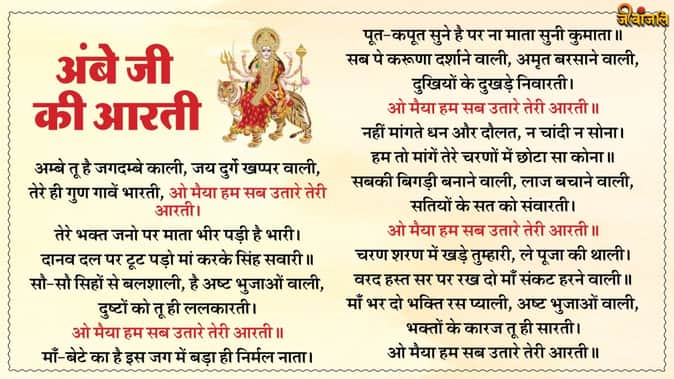 अंबे जी
की आरती
अम्बे तू है जगदम्बे काली, जय दुर्गे खप्पर वाली,
तेरे ही गुण गावें भारती, ओ मैया हम सब उतारे तेरी
आरती।
तेरे भक्त जनो पर माता भीर पड़ी है भारी।
दानव दल पर टूट पड़ो मां करके सिंह सवारी॥
सौ-सौ सिहों से बलशाली, है अष्ट भुजाओं वाली,
दुष्टों को तू ही ललकारती।
ओ मैया हम सब उतारे तेरी आरती॥
माँ-बेटे का है इस जग में बड़ा ही निर्मल नाता।
पूत-कपूत सुने है पर ना माता सुनी कुमाता॥
सब पे करूणा दर्शाने वाली, अमृत बरसाने वाली,
दुखियों के दुखड़े निवारती।
ओ मैया हम सब उतारे तेरी आरती॥
नहीं मांगते धन और दौलत, न चांदी न सोना।
हम तो मांगें तेरे चरणों में छोटा सा कोना॥
सबकी बिगड़ी बनाने वाली, लाज बचाने वाली,
सतियों के सत को संवारती।
ओ मैया हम सब उतारे तेरी आरती॥
चरण शरण में खड़े तुम्हारी, ले पूजा की थाली।
वरद हस्त सर पर रख दो माँ संकट हरने वाली॥
माँ भर दो भक्ति रस प्याली, अष्ट भुजाओं वाली,
भक्तों के कारज तू ही सारती।
ओ मैया हम सब उतारे तेरी आरती॥
जीवांजलि